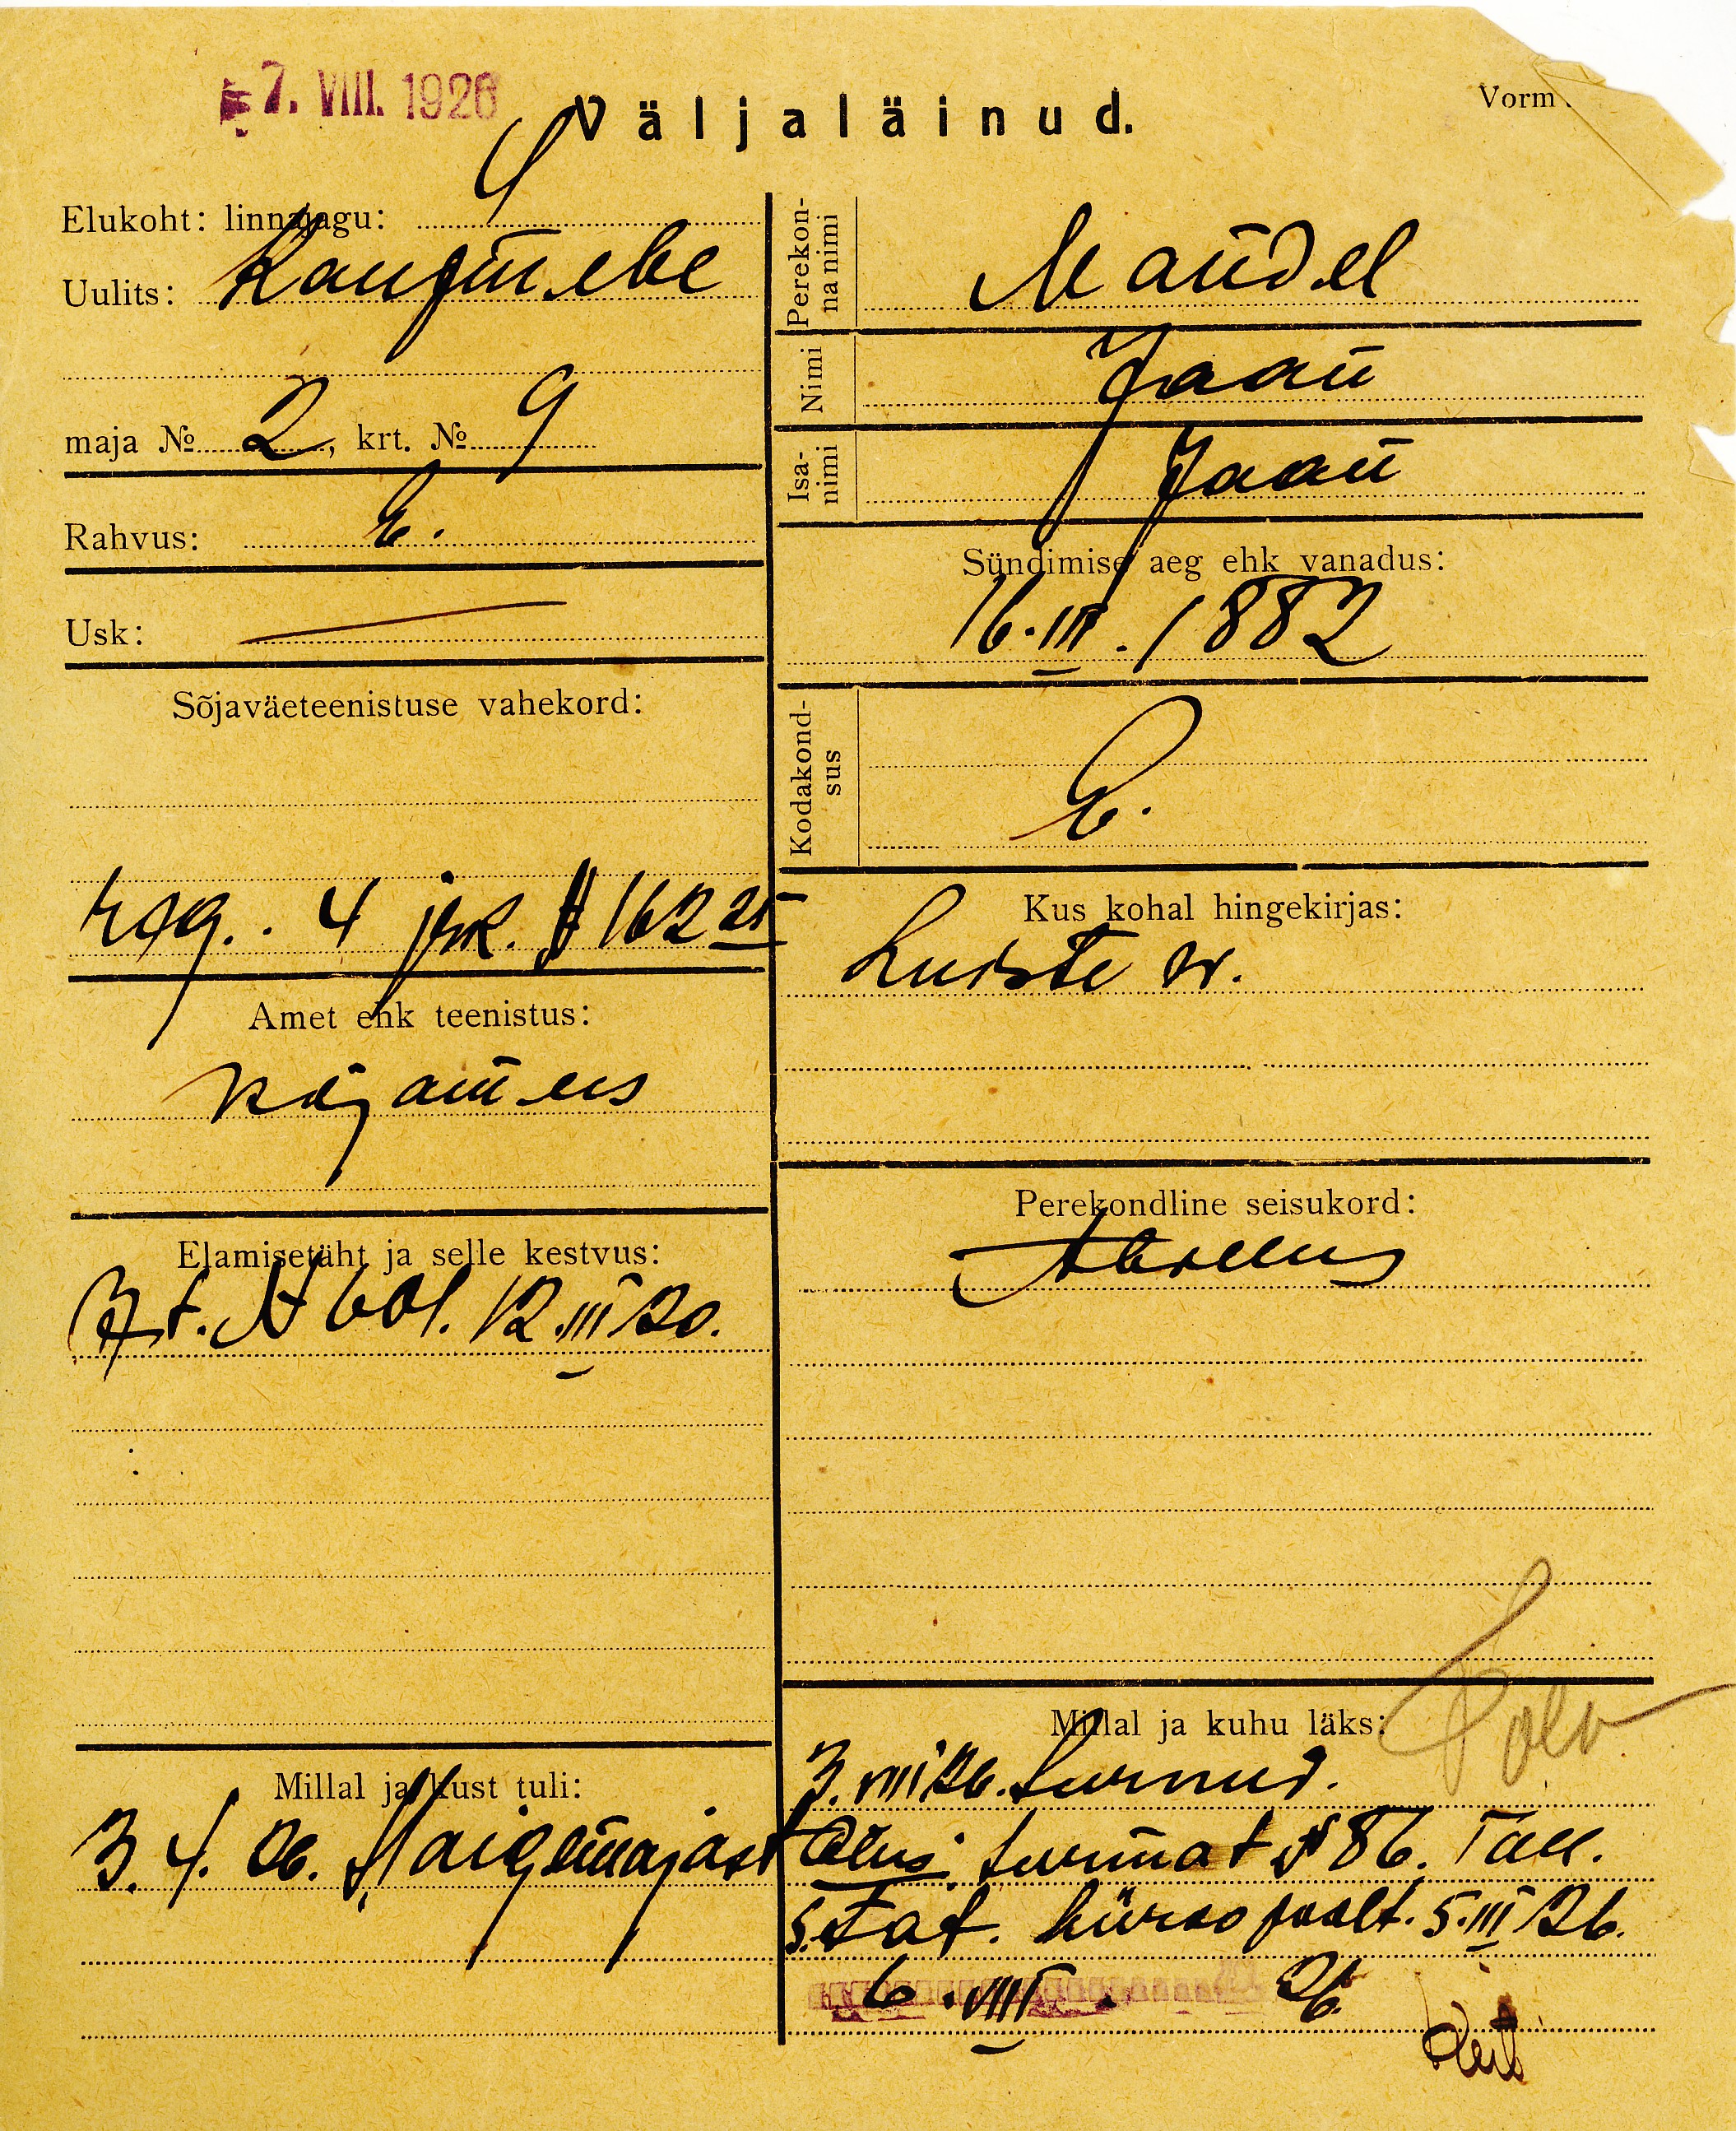 7. VIII. 1926
Väljaläinud.
Vorm
Elukoht: linnajagu: 4
Uulits: Kaupmehe
maja № 2, krt. № 9
Rahvus: E.
Usk: —
Sõjaväeteenistuse vahekord:
4 jsk. № 162 25
Amet ehk teenistus:
käjamees
Elamisetäht ja selle kestvus:
№ 601. 12.III 20.
Millal ja kust tuli:
3. 4. 26. Haigemajast
Perekon-
na nimi
Mandel
Nimi
Jaan
Isa-
nimi
Jaan
Sündimise aeg ehk vanadus:
16.III.1882
Kodakond-
sus
E.
Kus kohal hingekirjas:
Luiste w.
Perekondline seisukord:
Abielus
Millal ja kuhu läks:
3.VIII 26. Surnud.
Alus: surmat № 86. Tall.
s. Tat. büroo poolt. 5.III 26.
6. VIII. 26.